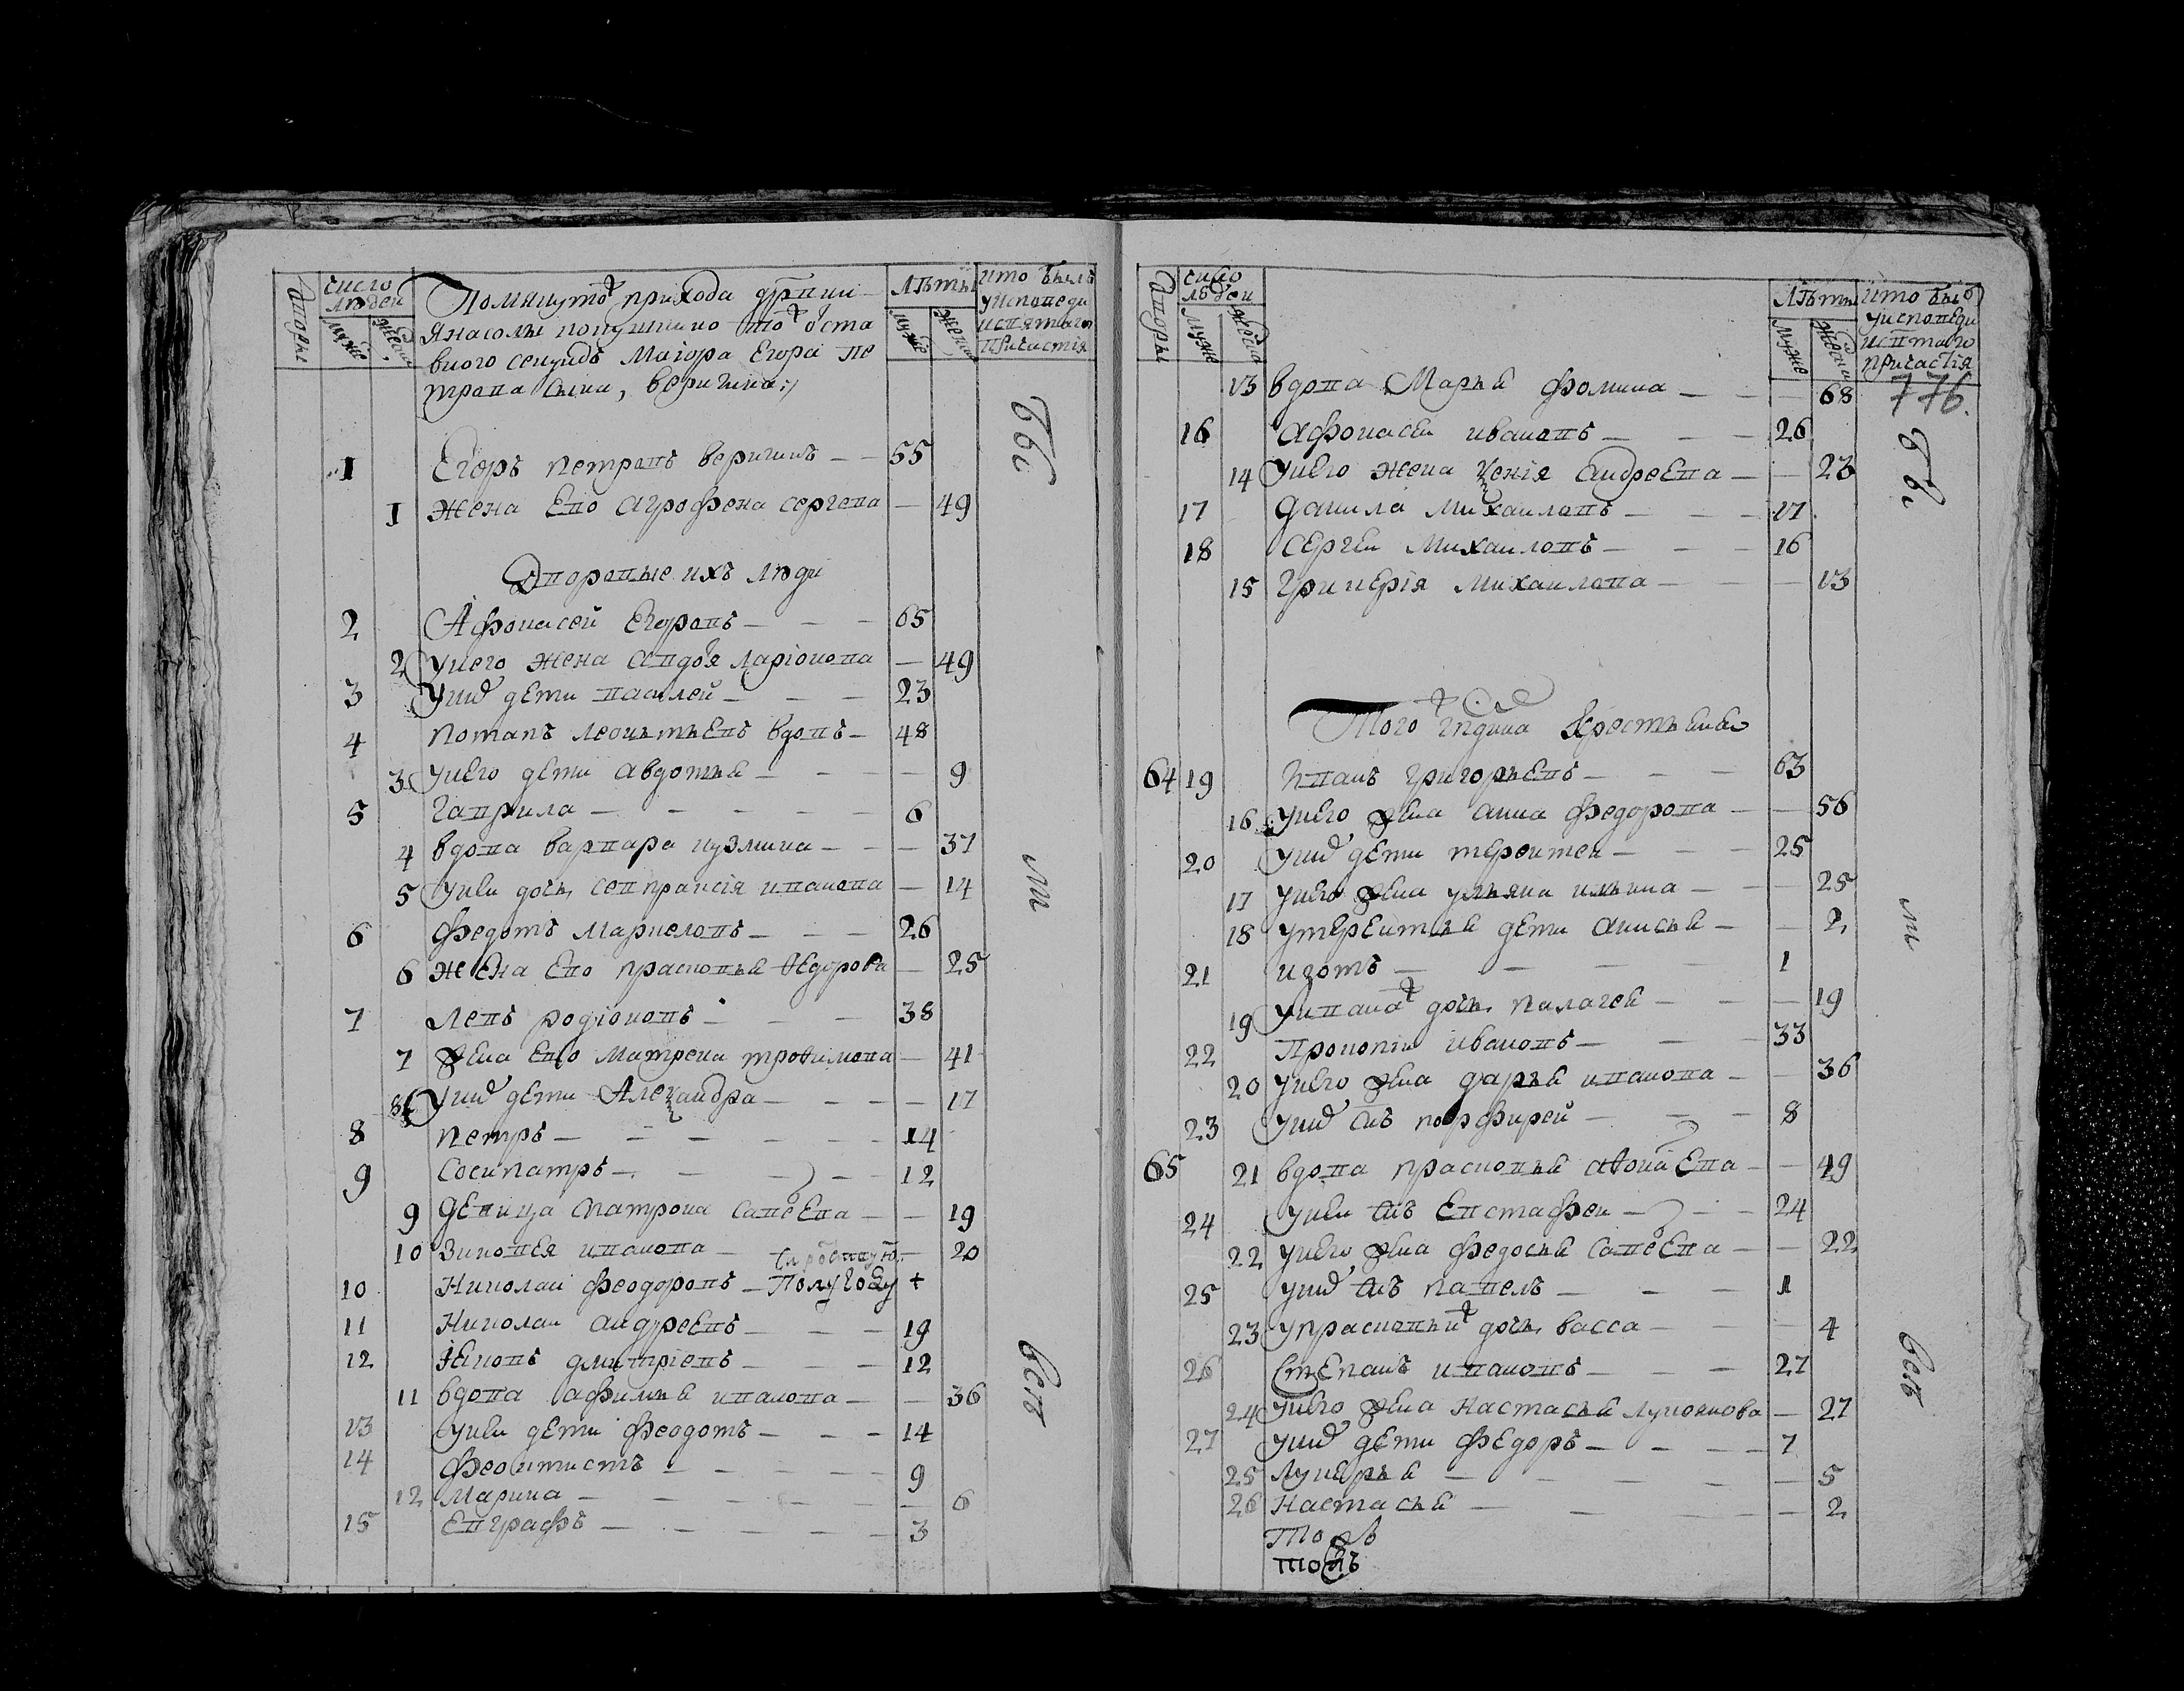 дворы
число людей
муже
женска
Помянутого прихода дрвни
лѣты
муже
женска
кто былъ
у исповеди
и святаго
причастія
вного секундъ Маіора Егора пе
трова сына, веригина:/
1 Егоръ петровъ веригинъ — — 55
1 жена ево агрофена сергева — 49
Дворовые ихъ люди
2 Афонасей Егоровъ — — — 65
2 у него жена авдоя ларіонова — 49
3 у них дети василей — — — 23
4 потапъ леонтьевъ вдовъ — 48
3 у него дети авдотья — — — — 9
5 гаврила — — — — — 6
4 вдова варвара кузмина — — — 37
5 у неи дочь севирансія иванова — 14
6 федотъ маркеловъ — — — 26
6 жена ево прасковья ѳедорова — 25
7 левъ родіоновъ — — — 38
7 жена ево матрена троѳимова — 41
8 у них дети Алеѯандра — — — — 17
8 петръ — — — — — — 14
9 сосипатръ — — — — 12
9 девица матрона савеева — — 19
10 зиновея иванова — — 20
10 николаи феодоровъ — полугоду +
11 николаи андреевъ — — — 19
12 яковъ дмитріевъ — — — 12
11 вдова афимья иванова — — 36
13 у неи дети феодотъ — — — 14
14 феоктистъ — — — — — 9
12 марина — — — — — — 6
15 евграфъ — — — — — — 3
бы
ли
всѣ
дворы
число людей
муже
женска
лѣты
муже
женска
кто былъ
у исповеди
и святаго
причастія
776.
13 вдова Марья фомина — — — 68
16 афонасеи ивановъ — — — 26
14 у него жена ѯенія андреева — — 23
17 данила михаиловъ — — — 17
18 сергеи михаиловъ — — — 16
15 гликерія михаилова — — — 13
Того гпдина крестьяня
64 19 иванъ григорьевъ — — — 63
16 у него жна анна федорова — — 56
20 у них дети терентеи — — — 25
17 у него жна ульяна ильина — — — 25
18 у терентья дети анисья — — 2
21 изотъ — — — — 1
19 у ивана дочь палагея — — — 19
22 прокопіи ивановъ — — — 33
20 у него жна дарья иванова — — 36
23 у них снъ порфирей — — — 8
65 21 вдова прасковья аѳонаева — — 49
24 у неи снъ евстафеи — — — 24
22 у него жна федосья савеева — — 22
25 у них снъ павелъ — — — 1
23 у прасковьи дочь васса — — — 4
26 степанъ ивановъ — — — 27
24 у него жна настасья лукоянова — 27
27 у них дети федоръ — — — — 7
25 лукерья — — — — — 5
26 настасья — — — — — 2
бы
ли
всѣ